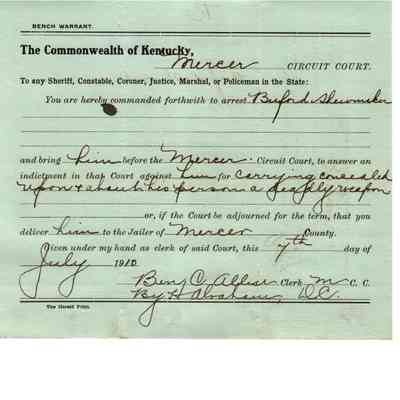 BENCH WARRANT.
The Commonwealth of Kentucky,
Mercer CIRCUIT COURT.
To any Sheriff, Constable, Coroner, Justice, Marshal, or Policeman in the State:
You are hereby commanded forthwith to arrest Buford Shewmaker
and bring him before the Mercer Circuit Court, to answer an
indictment in that Court against him for carrying concealed
upon & about his person a deadly weapon
or, if the Court be adjourned for the term, that you
deliver him to the Jailer of Mercer County.
Given under my hand as clerk of said Court, this 7th day of
July 1910.
Ben C. Allin Clerk M C. C.
By H Abraham, D.C.
The Herald Print.